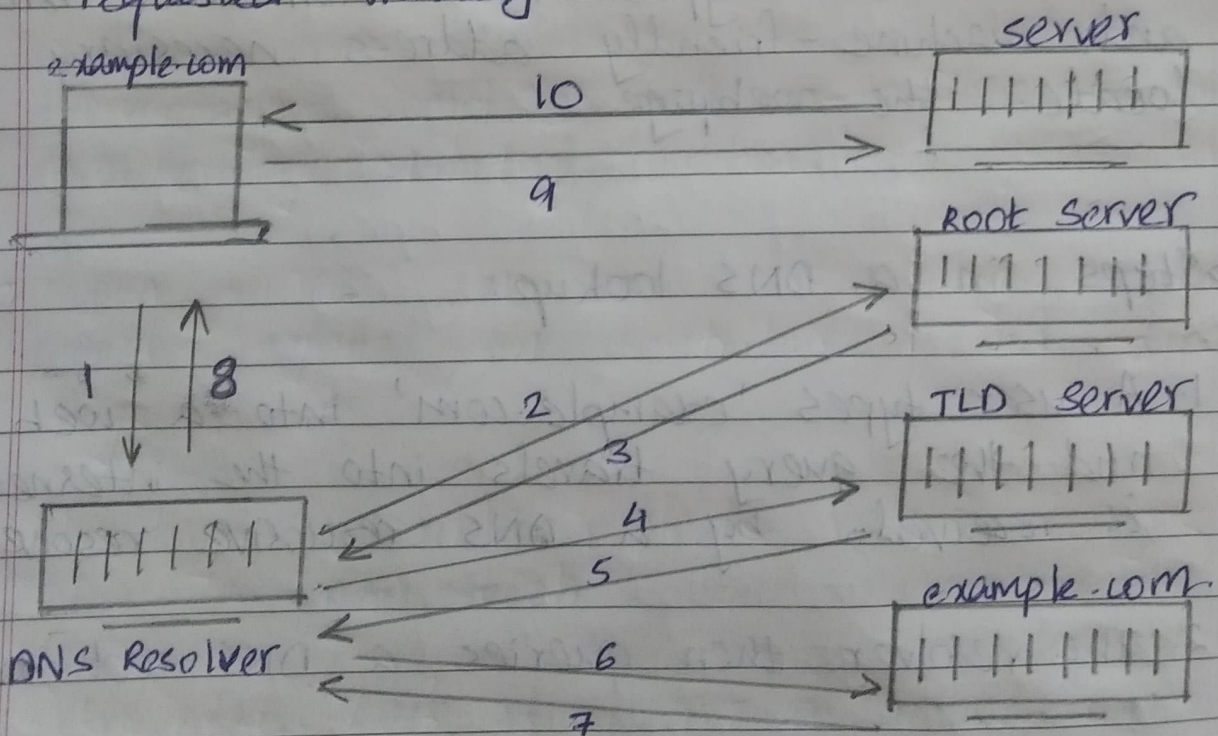 example.com
server
10
9
Root server
1
8
2
3
TLD server
4
5
example.com
DNS Resolver
6
7